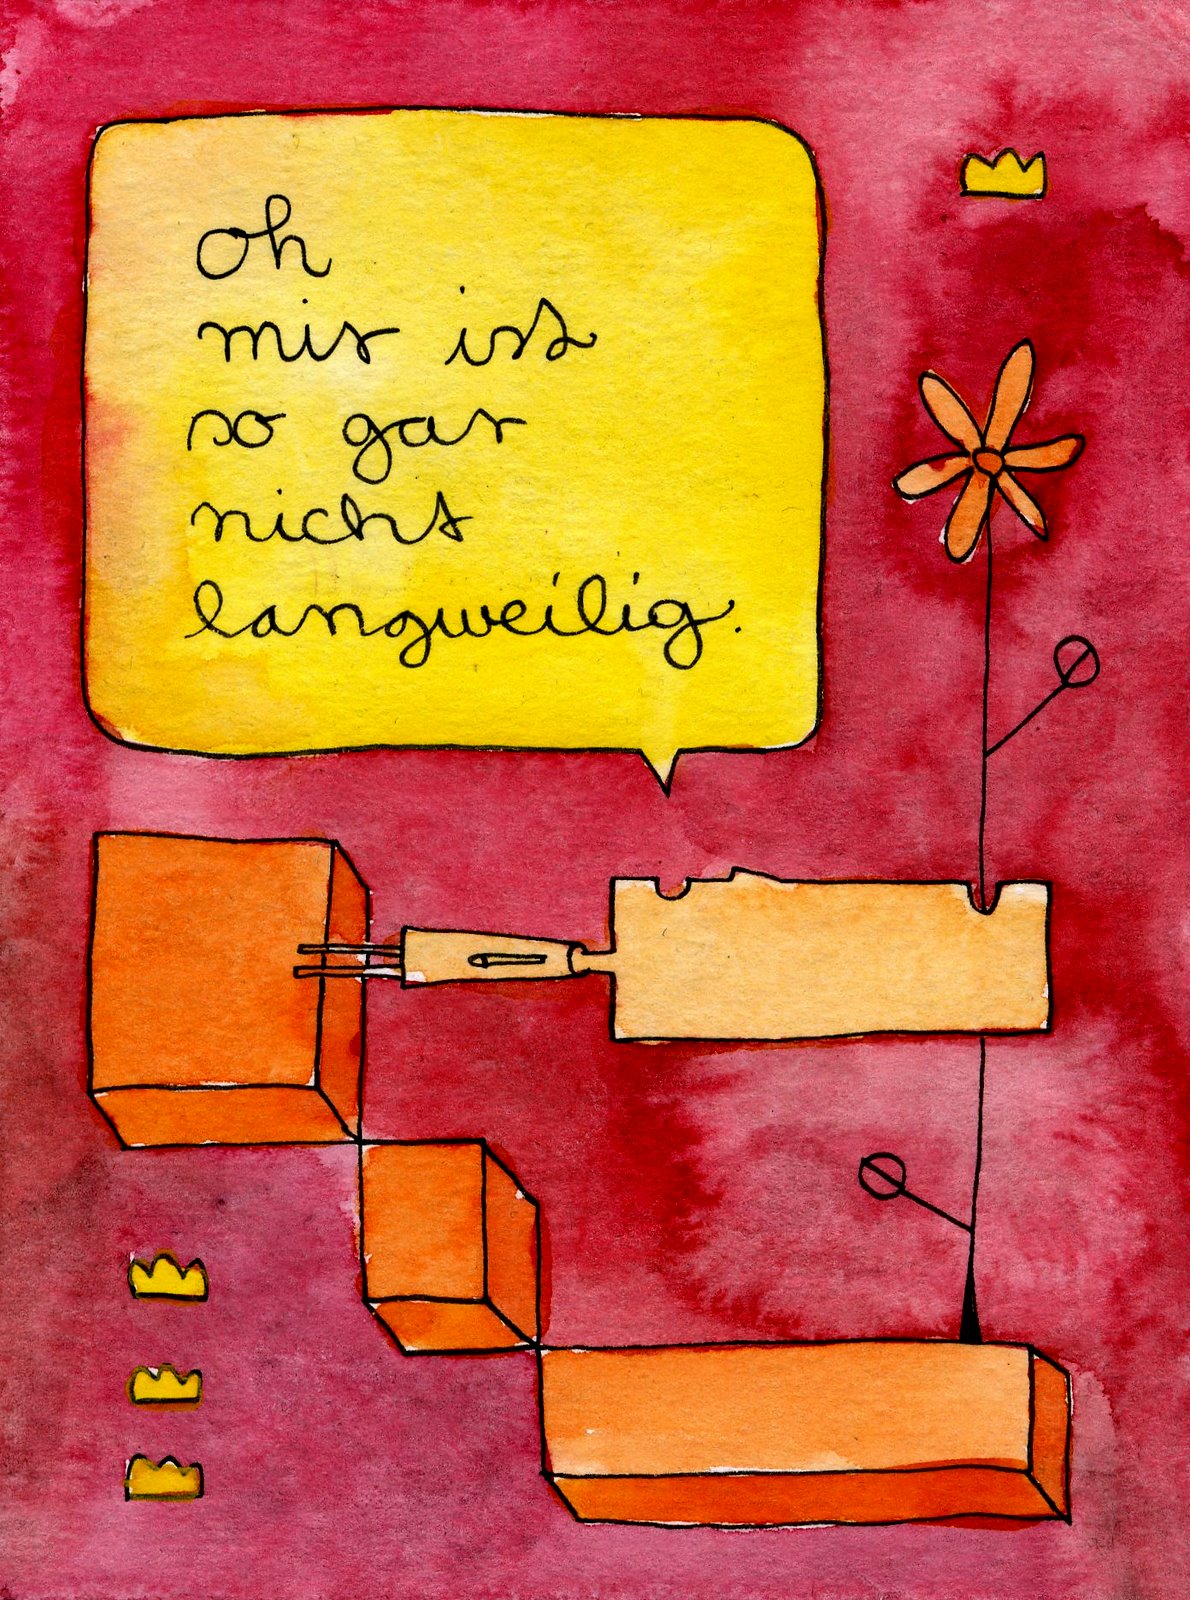 oh
mir ist
so gar
nicht
langweilig.